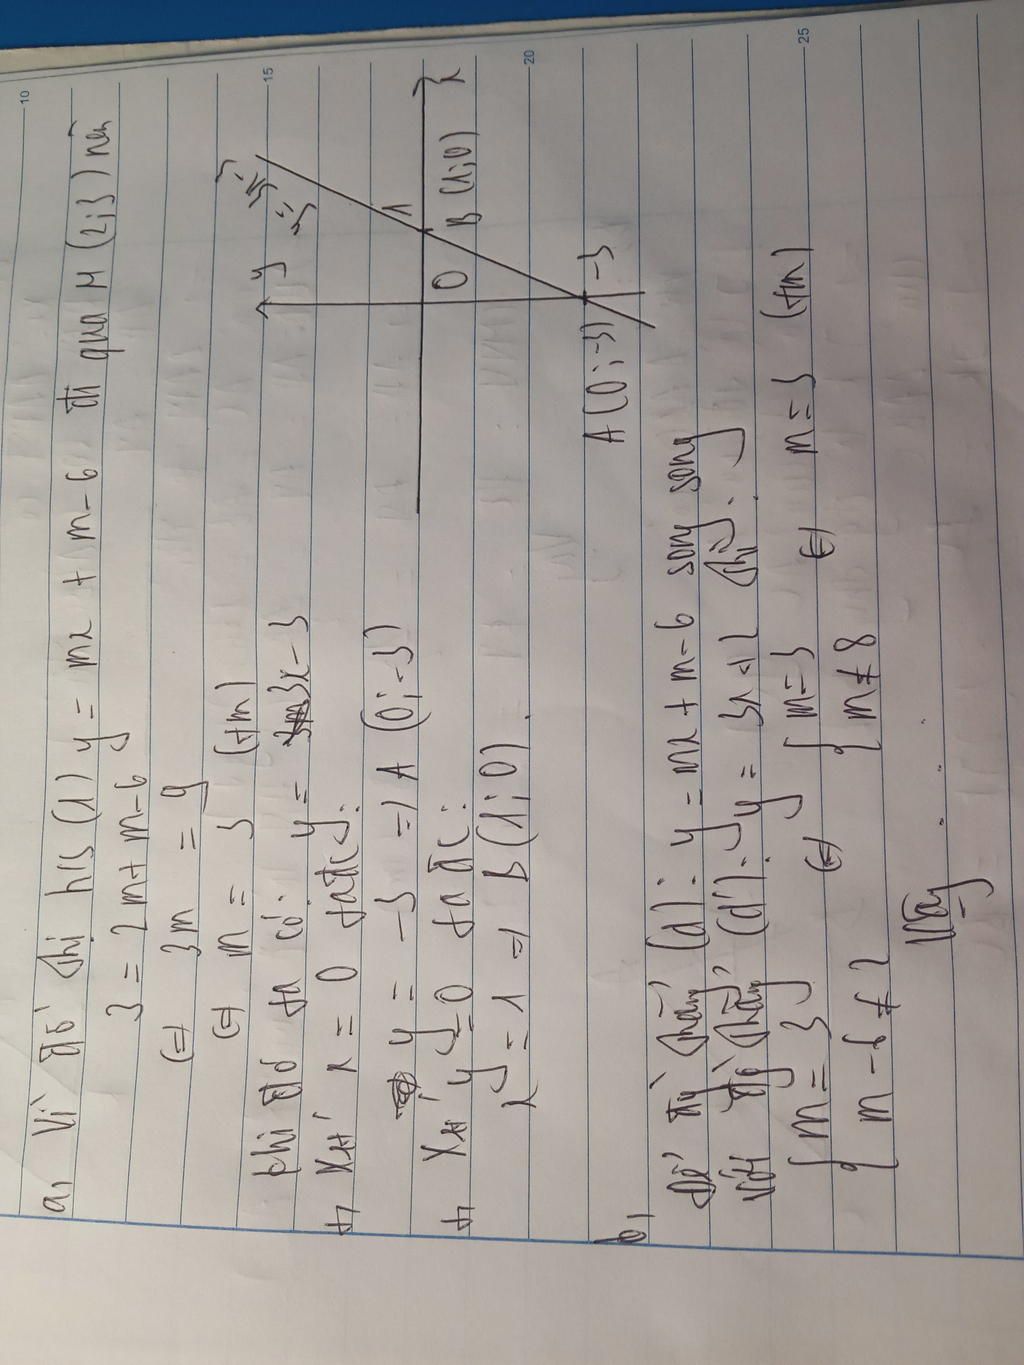 a, Vì đồ thị h/s (1) y = mx + m - 6 đi qua M (2;3) nên
3 = 2m + m - 6
(=) 3m = 9
(=) m = 3 (tm)
Khi đó ta có: y = 3x - 3
+, Xét x = 0 ta đc y:
y = -3 => A (0; -3)
+, Xét y = 0 ta đc:
x = 1 => B (1; 0)
y
x
O
1
B (1; 0)
-3
A (0; -3)
y = 3x - 3
b,
Để đg thẳng (d): y = mx + m - 6 song song
với đg thẳng (d'): y = 3x + 2 thì:
{ m = 3
{ m - 6 ≠ 2
(=) { m = 3
{ m ≠ 8
(=) m = 3 (tm)
Vậy ...
10
15
20
25